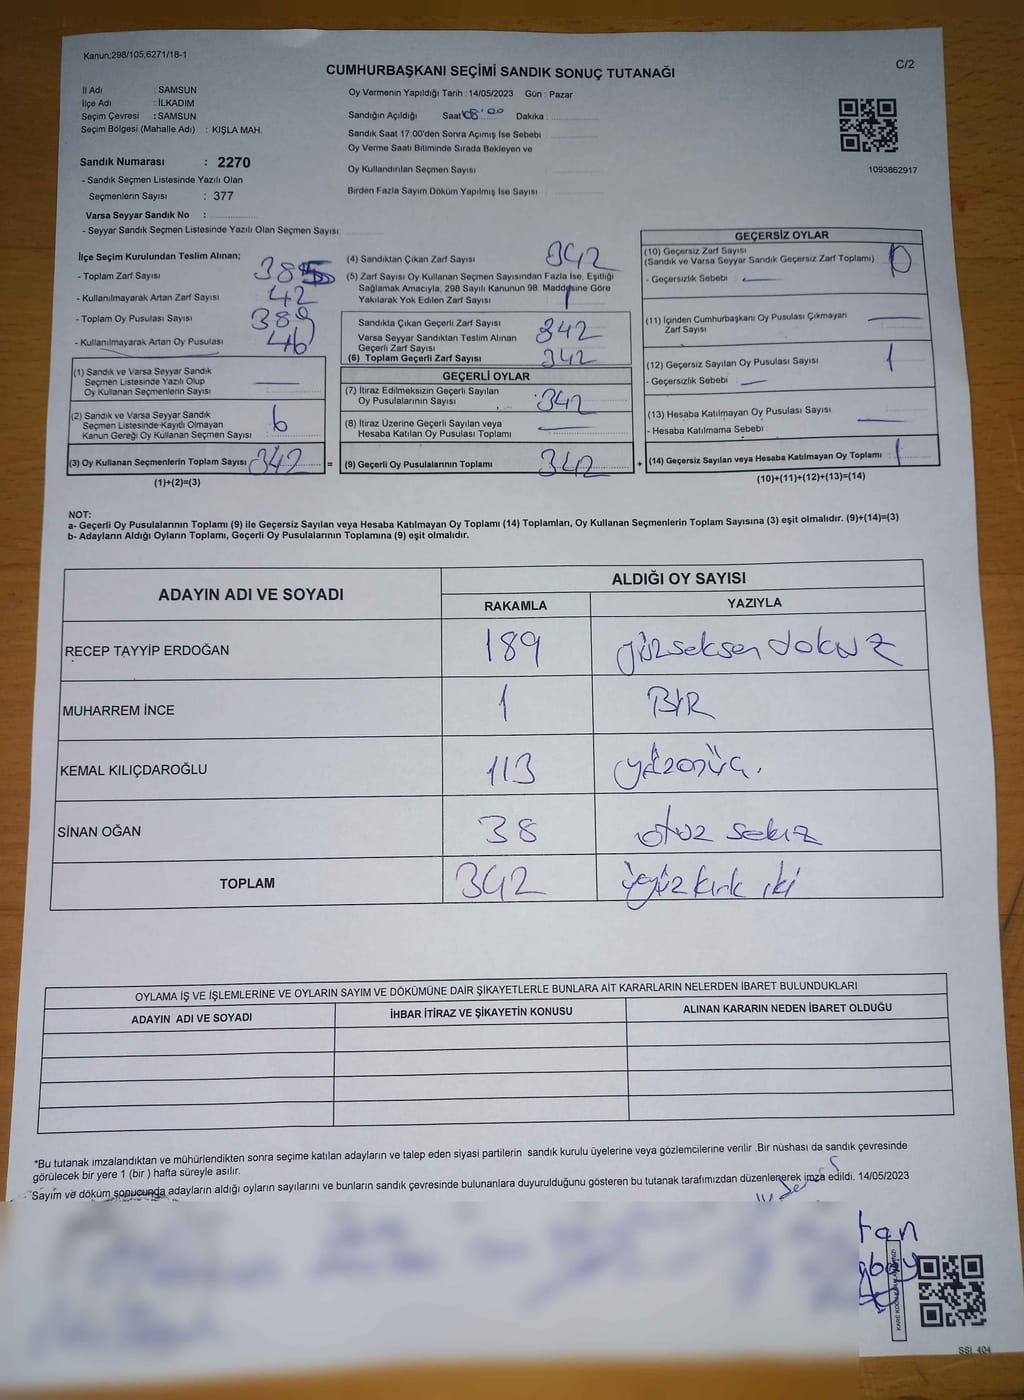 Kanun;298/105;6271/18-1
C/2
CUMHURBAŞKANI SEÇİMİ SANDIK SONUÇ TUTANAĞI
İl Adı : SAMSUN
İlçe Adı : İLKADIM
Seçim Çevresi : SAMSUN
Seçim Bölgesi (Mahalle Adı) : KIŞLA MAH.
Sandık Numarası : 2270
- Sandık Seçmen Listesinde Yazılı Olan
Seçmenlerin Sayısı : 377
Varsa Seyyar Sandık No :
- Seyyar Sandık Seçmen Listesinde Yazılı Olan Seçmen Sayısı
Oy Vermenin Yapıldığı Tarih : 14/05/2023 Gün : Pazar
Sandığın Açıldığı Saat 08:00 Dakika :
Sandık Saat 17:00'den Sonra Açımış İse Sebebi
Oy Verme Saati Bitiminde Sırada Bekleyen ve
Oy Kullandırılan Seçmen Sayısı
Birden Fazla Sayım Döküm Yapılmış İse Sayısı
1093862917
İlçe Seçim Kurulundan Teslim Alınan;
- Toplam Zarf Sayısı 385
- Kullanılmayarak Artan Zarf Sayısı 42
- Toplam Oy Pusulası Sayısı 389
- Kullanılmayarak Artan Oy Pusulası 46
(1) Sandık ve Varsa Seyyar Sandık
Seçmen Listesinde Yazılı Olup
Oy Kullanan Seçmenlerin Sayısı
(2) Sandık ve Varsa Seyyar Sandık
Seçmen Listesinde Kayıtlı Olmayan
Kanun Gereği Oy Kullanan Seçmen Sayısı 6
(3) Oy Kullanan Seçmenlerin Toplam Sayısı 342 =
(1)+(2)=(3)
(4) Sandıktan Çıkan Zarf Sayısı 342
(5) Zarf Sayısı Oy Kullanan Seçmen Sayısından Fazla İse, Eşitliği
Sağlamak Amacıyla, 298 Sayılı Kanunun 98. Maddesine Göre
Yakılarak Yok Edilen Zarf Sayısı 1
Sandıkta Çıkan Geçerli Zarf Sayısı 342
Varsa Seyyar Sandıktan Teslim Alınan
Geçerli Zarf Sayısı
(6) Toplam Geçerli Zarf Sayısı 342
GEÇERLİ OYLAR
(7) İtiraz Edilmeksizin Geçerli Sayılan
Oy Pusulalarının Sayısı 342
(8) İtiraz Üzerine Geçerli Sayılan veya
Hesaba Katılan Oy Pusulası Toplamı
(9) Geçerli Oy Pusulalarının Toplamı 342 +
GEÇERSİZ OYLAR
(10) Geçersiz Zarf Sayısı
(Sandık ve Varsa Seyyar Sandık Geçersiz Zarf Toplamı)
- Geçersizlik Sebebi :
(11) İçinden Cumhurbaşkanı Oy Pusulası Çıkmayan
Zarf Sayısı
(12) Geçersiz Sayılan Oy Pusulası Sayısı 1
- Geçersizlik Sebebi :
(13) Hesaba Katılmayan Oy Pusulası Sayısı
- Hesaba Katılmama Sebebi :
(14) Geçersiz Sayılan veya Hesaba Katılmayan Oy Toplamı 1
(10)+(11)+(12)+(13)=(14)
NOT:
a- Geçerli Oy Pusulalarının Toplamı (9) ile Geçersiz Sayılan veya Hesaba Katılmayan Oy Toplamı (14) Toplamları, Oy Kullanan Seçmenlerin Toplam Sayısına (3) eşit olmalıdır. (9)+(14)=(3)
b- Adayların Aldığı Oyların Toplamı, Geçerli Oy Pusulalarının Toplamına (9) eşit olmalıdır.
ADAYIN ADI VE SOYADI
ALDIĞI OY SAYISI
RAKAMLA YAZIYLA
RECEP TAYYİP ERDOĞAN 189 yüzseksen dokuz
MUHARREM İNCE 1 BİR
KEMAL KILIÇDAROĞLU 113 yüzonüç.
SİNAN OĞAN 38 otuz sekiz
TOPLAM 342 üçyüz kırk iki
OYLAMA İŞ VE İŞLEMLERİNE VE OYLARIN SAYIM VE DÖKÜMÜNE DAİR ŞİKAYETLERLE BUNLARA AİT KARARLARIN NELERDEN İBARET BULUNDUKLARI
ADAYIN ADI VE SOYADI İHBAR İTİRAZ VE ŞİKAYETİN KONUSU ALINAN KARARIN NEDEN İBARET OLDUĞU
*Bu tutanak imzalandıktan ve mühürlendikten sonra seçime katılan adayların ve talep eden siyasi partilerin sandık kurulu üyelerine veya gözlemcilerine verilir .Bir nüshası da sandık çevresinde
görülecek bir yere 1 (bir ) hafta süreyle asılır.
Sayım ve döküm sonucunda adayların aldığı oyların sayılarını ve bunların sandık çevresinde bulunanlara duyurulduğunu gösteren bu tutanak tarafımızdan düzenlenerek imza edildi. 14/05/2023
tan
SSI_404